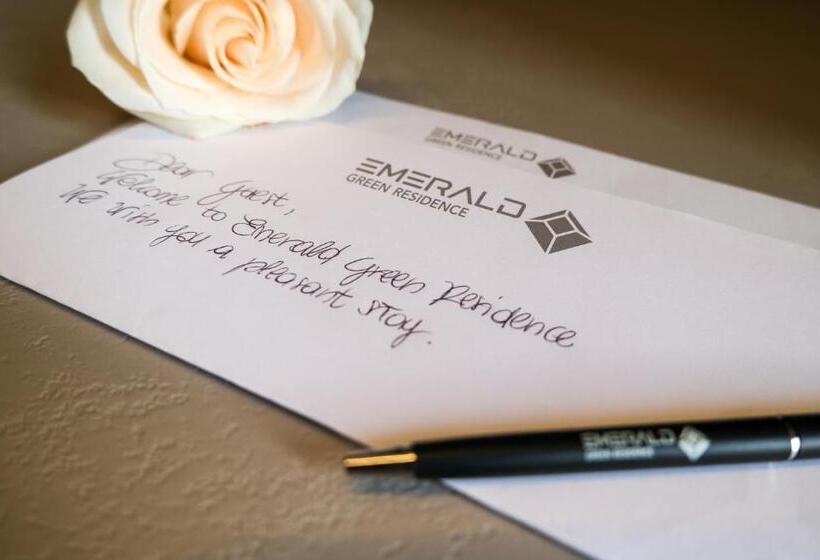 EMERALD
GREEN RESIDENCE
EMERALD
GREEN RESIDENCE
Dear guest,
Welcome to Emerald Green Residence
We wish you a pleasant stay.
EMERALD
GREEN RESIDENCE